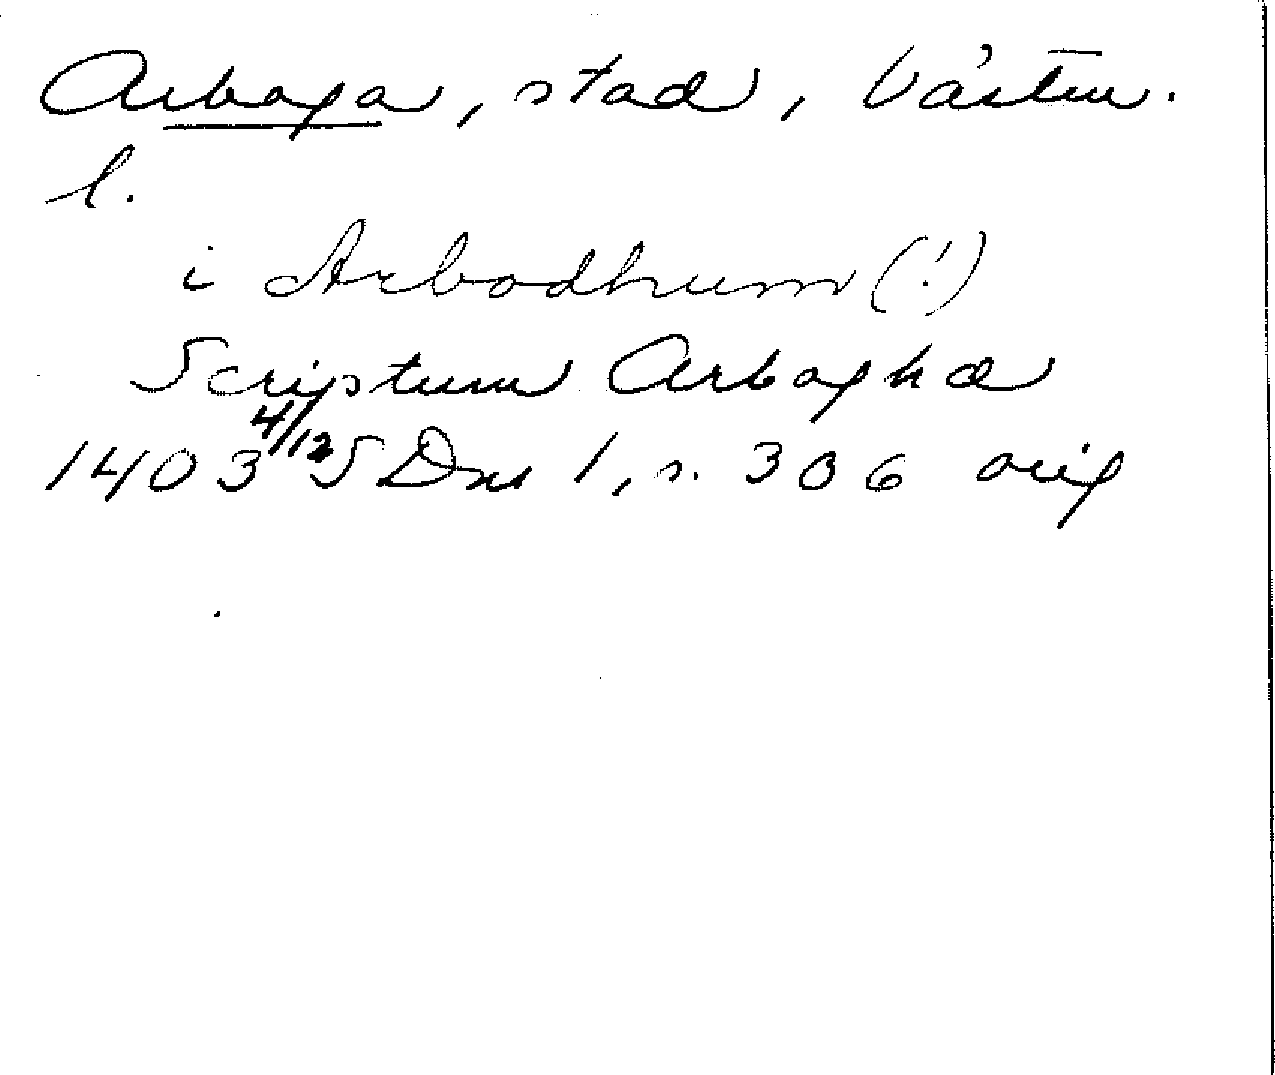 Arboga, stad, Västm.
l.
i Arbodhum (!)
Scriptum Arboghæ
1403 4/12 SDns 1, s. 306 orig